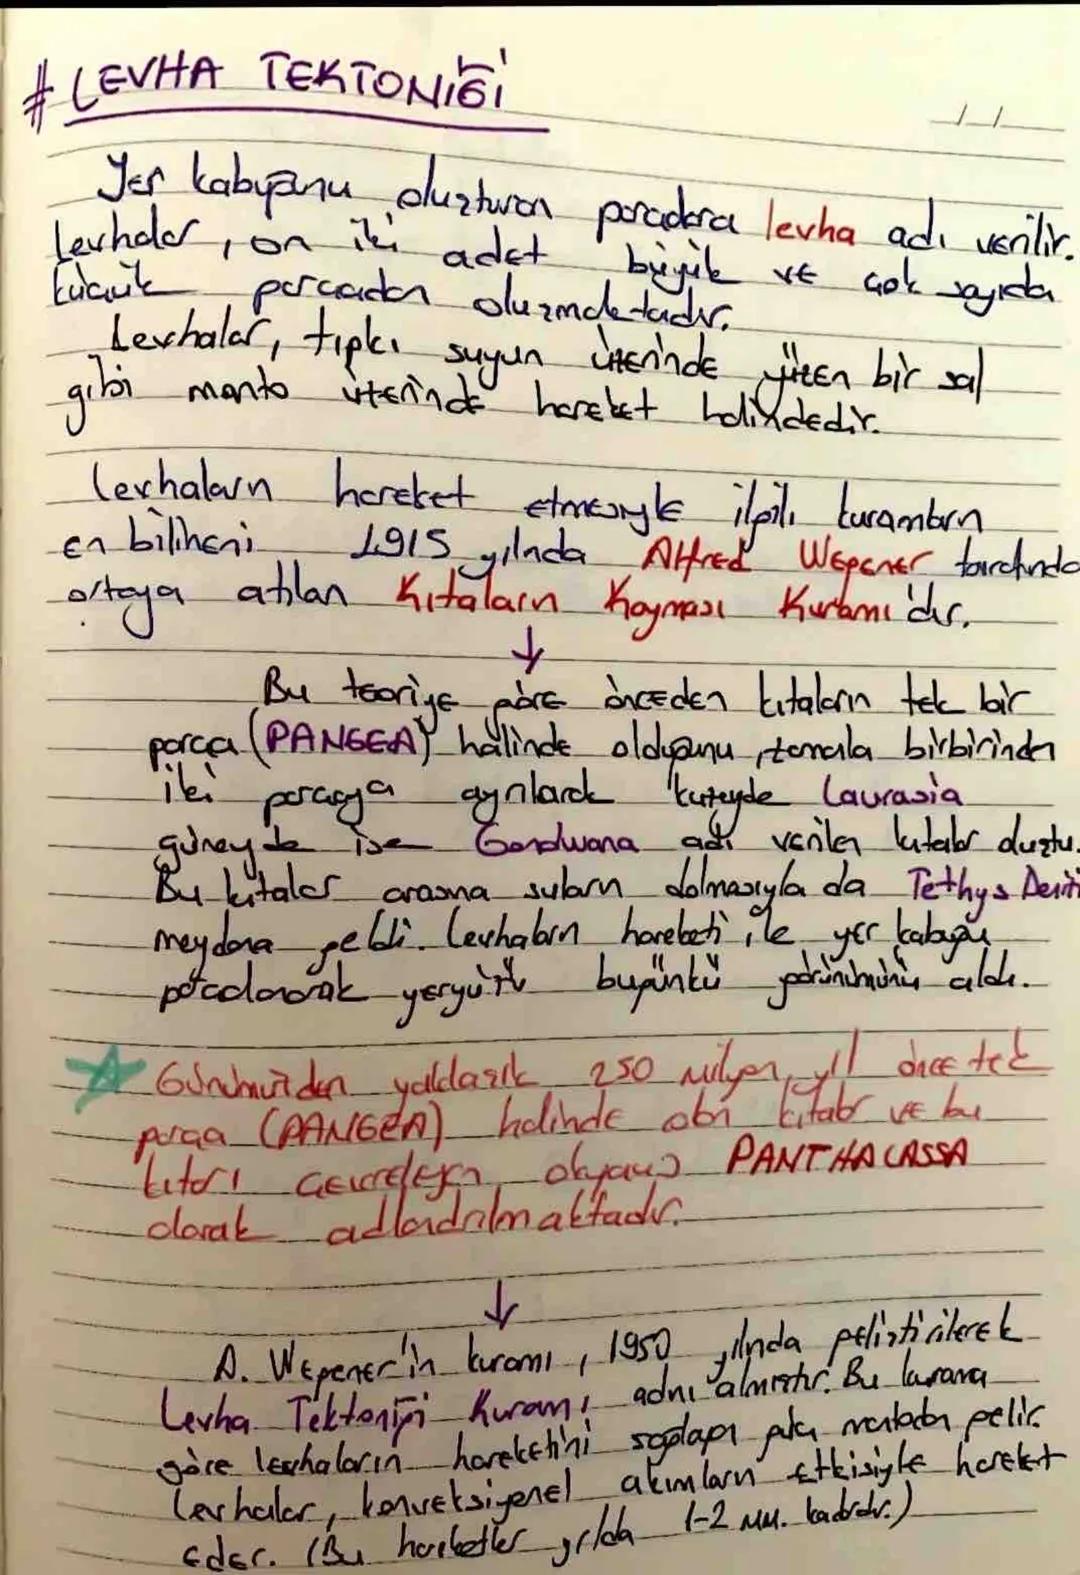 # LEVHA TEKTONİĞİ
Yer kabuğunu oluşturan parçalara levha adı verilir.
Levhalar, on iki adet büyük ve çok sayıda
küçük parçadan oluşmaktadır.
Levhalar, tıpkı suyun üzerinde yüzen bir sal
gibi manto üzerinde hareket halindedir.
Levhaların hareket etmesiyle ilgili kuramların
en bilineni 1915 yılında Alfred Wegener tarafından
ortaya atılan Kıtaların Kayması Kuramı'dır.
↓
Bu teoriye göre önceden kıtaların tek bir
parça (PANGEA) halinde olduğunu, zamanla birbirinden
iki parçaya ayrılarak kuzeyde Laurasia
güneyde ise Gondwana adı verilen kıtalar oluştu.
Bu kıtalar arasına suların dolmasıyla da Tethys Denizi
meydana geldi. Levhaların hareketi ile yer kabuğu
parçalanarak yeryüzü bugünkü görünümünü aldı.
Günümüzden yaklaşık 250 milyon yıl önce tek
parça (PANGEA) halinde olan kıtalar ve bu
kıtayı çevreleyen okyanus PANTHALASSA
olarak adlandırılmaktadır.
↓
A. Wegener'in kuramı, 1950 yılında geliştirilerek
Levha Tektoniği Kuramı adını almıştır. Bu kurama
göre levhaların hareketini sağlayan güç mantodan gelir.
Levhalar, konveksiyonel akımların etkisiyle hareket
eder. (Bu hareketler yılda 1-2 mm. kadardır.)